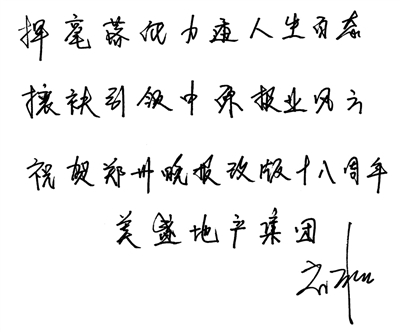 挥毫落纸力透人生百态
攘袂引领中原报业风云
祝贺郑州晚报改版十八周年
美盛地产集团